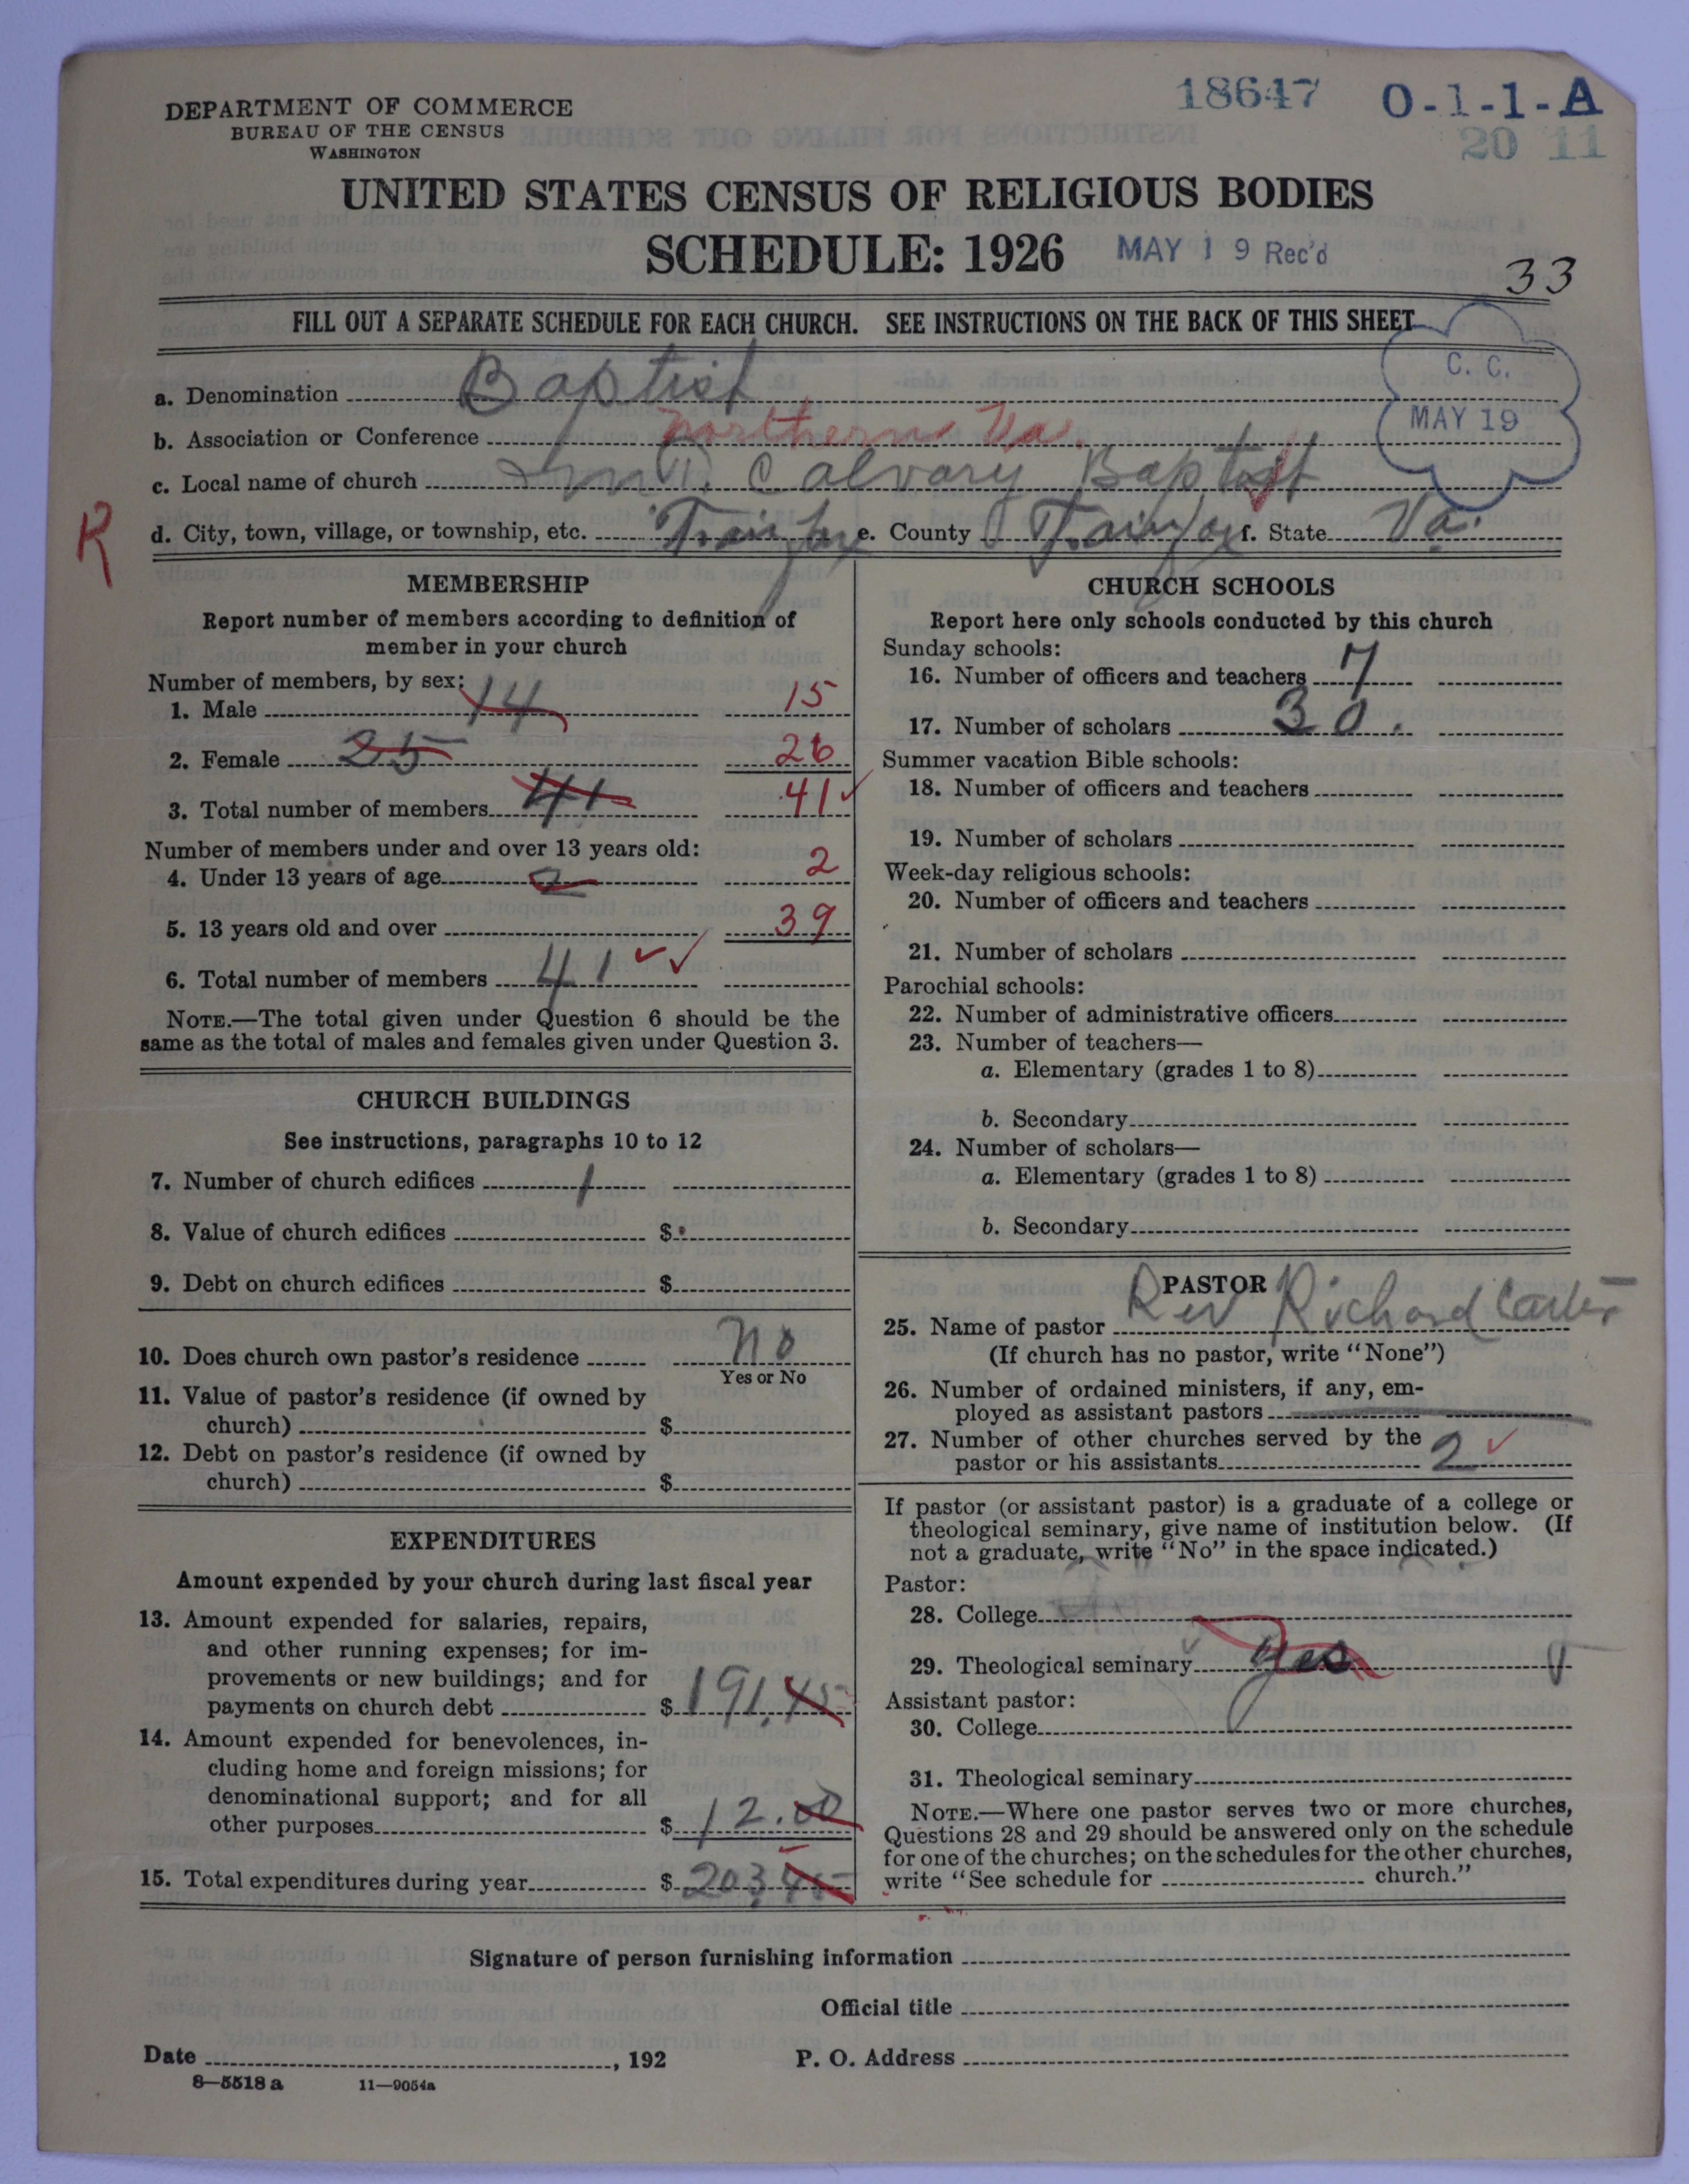 18647 0-1-1-A
20 11
DEPARTMENT OF COMMERCE
BUREAU OF THE CENSUS
WASHINGTON
UNITED STATES CENSUS OF RELIGIOUS BODIES
SCHEDULE: 1926 MAY 19 Rec'd
33
FILL OUT A SEPARATE SCHEDULE FOR EACH CHURCH. SEE INSTRUCTIONS ON THE BACK OF THIS SHEET
C. C.
MAY 19
a. Denomination Baptist
b. Association or Conference Northern Va.
c. Local name of church Mt. Calvary Baptist
R
d. City, town, village, or township, etc. Fairfax e. County Fairfax f. State Va.
MEMBERSHIP
Report number of members according to definition of
member in your church
Number of members, by sex:
1. Male 14 15
2. Female 25 26
3. Total number of members 41 41
Number of members under and over 13 years old:
4. Under 13 years of age 2 2
5. 13 years old and over 39
6. Total number of members 41
NOTE.—The total given under Question 6 should be the
same as the total of males and females given under Question 3.
CHURCH BUILDINGS
See instructions, paragraphs 10 to 12
7. Number of church edifices 1
8. Value of church edifices $
9. Debt on church edifices $
10. Does church own pastor's residence No
Yes or No
11. Value of pastor's residence (if owned by
church) $
12. Debt on pastor's residence (if owned by
church) $
EXPENDITURES
Amount expended by your church during last fiscal year
13. Amount expended for salaries, repairs,
and other running expenses; for im-
provements or new buildings; and for
payments on church debt $ 191.45
14. Amount expended for benevolences, in-
cluding home and foreign missions; for
denominational support; and for all
other purposes $ 12.00
15. Total expenditures during year $ 203.45
CHURCH SCHOOLS
Report here only schools conducted by this church
Sunday schools:
16. Number of officers and teachers 7
17. Number of scholars 30.
Summer vacation Bible schools:
18. Number of officers and teachers
19. Number of scholars
Week-day religious schools:
20. Number of officers and teachers
21. Number of scholars
Parochial schools:
22. Number of administrative officers
23. Number of teachers—
a. Elementary (grades 1 to 8)
b. Secondary
24. Number of scholars—
a. Elementary (grades 1 to 8)
b. Secondary
PASTOR
25. Name of pastor Rev Richard Carter
(If church has no pastor, write "None")
26. Number of ordained ministers, if any, em-
ployed as assistant pastors
27. Number of other churches served by the
pastor or his assistants 2
If pastor (or assistant pastor) is a graduate of a college or
theological seminary, give name of institution below. (If
not a graduate, write "No" in the space indicated.)
Pastor:
28. College
29. Theological seminary Yes
Assistant pastor:
30. College
31. Theological seminary
NOTE.—Where one pastor serves two or more churches,
Questions 28 and 29 should be answered only on the schedule
for one of the churches; on the schedules for the other churches,
write "See schedule for church."
Signature of person furnishing information
Official title
Date , 192 P. O. Address
8—5518 a 11—9054a